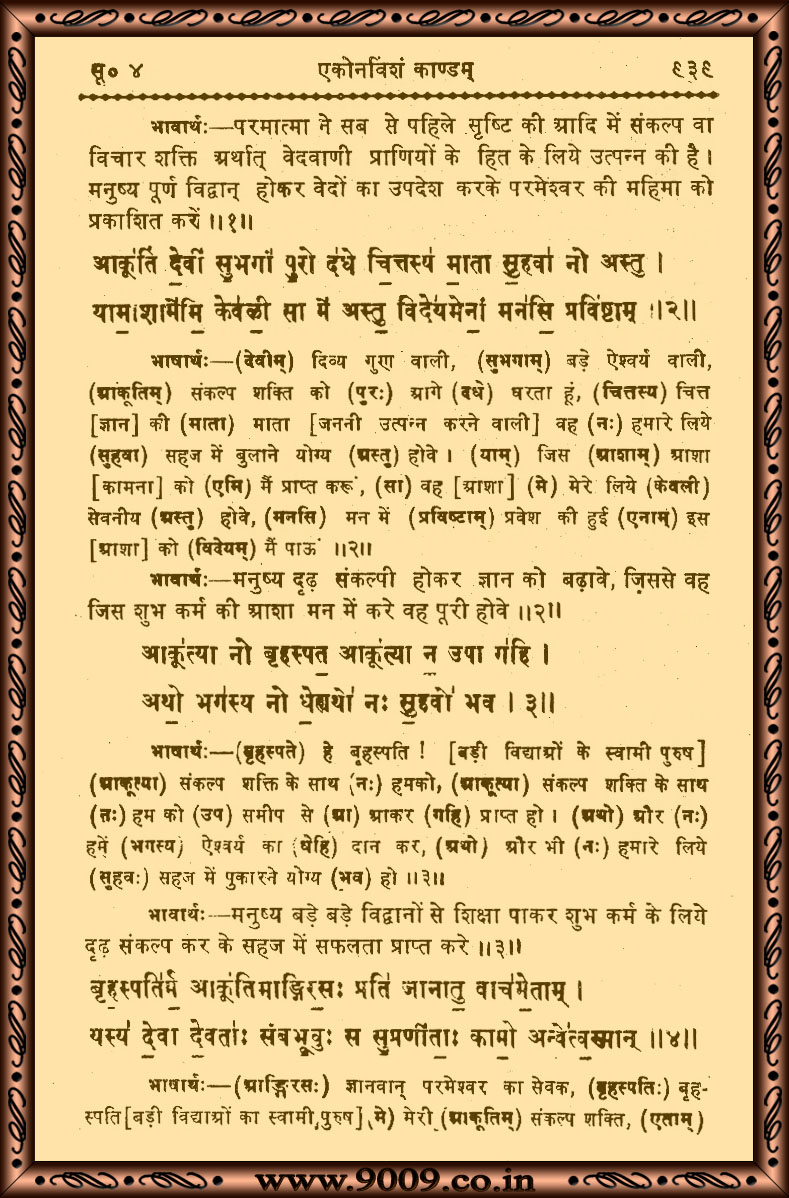 सू० ४ एकोनविंशं काण्डम् ९३९
भावार्थः—परमात्मा ने सब से पहिले सृष्टि की आदि में संकल्प वा
विचार शक्ति अर्थात् वेदवाणी प्राणियों के हित के लिये उत्पन्न की है।
मनुष्य पूर्ण विद्वान् होकर वेदों का उपदेश करके परमेश्वर की महिमा को
प्रकाशित करें ॥१॥
आकू॑तिं दे॒वीं सु॒भगां॑ पु॒रो द॑धे चि॒त्तस्य॑ मा॒ता सु॒हवा॑ नो अस्तु ।
यामा॒शामे॑मि॒ केव॑ली॒ सा मे॑ अस्तु॒ विदे॑यमेनां॒ मन॑सि॒ प्रवि॑ष्टाम् ॥२॥
भाषार्थः—(देवीम्) दिव्य गुण वाली, (सुभगाम्) बड़े ऐश्वर्य वाली,
(आकूतिम्) संकल्प शक्ति को (पुरः) आगे (दधे) धरता हूं, (चित्तस्य) चित्त
[ज्ञान] की (माता) माता [जननी उत्पन्न करने वाली] वह (नः) हमारे लिये
(सुहवा) सहज में बुलाने योग्य (अस्तु) होवे । (याम्) जिस (आशाम्) आशा
[कामना] को (एमि) मैं प्राप्त करूं, (सा) वह [आशा] (मे) मेरे लिये (केवली)
सेवनीय (अस्तु) होवे, (मनसि) मन में (प्रविष्टाम्) प्रवेश की हुई (एनाम्) इस
[आशा] को (विदेयम्) मैं पाऊं ॥२॥
भावार्थः—मनुष्य दृढ़ संकल्पी होकर ज्ञान को बढ़ावे, जिससे वह
जिस शुभ कर्म की आशा मन में करे वह पूरी होवे ॥२॥
आकू॑त्या नो बृहस्पत॒ आकू॑त्या न॒ उपा ग॑हि ।
अथो॒ भग॑स्य नो धे॒ह्यथो॑ नः सु॒हवो॑ भव । ३॥
भाषार्थः—(बृहस्पते) हे बृहस्पति ! [बड़ी विद्याओं के स्वामी पुरुष]
(आकूत्या) संकल्प शक्ति के साथ (नः) हमको, (आकूत्या) संकल्प शक्ति के साथ
(नः) हम को (उप) समीप से (आ) आकर (गहि) प्राप्त हो । (अथो) और (नः)
हमें (भगस्य) ऐश्वर्य का (धेहि) दान कर, (अथो) और भी (नः) हमारे लिये
(सुहवः) सहज में पुकारने योग्य (भव) हो ॥३॥
भावार्थः—मनुष्य बड़े बड़े विद्वानों से शिक्षा पाकर शुभ कर्म के लिये
दृढ़ संकल्प कर के सहज में सफलता प्राप्त करे ॥३॥
बृह॒स्पति॑र्म॒ आकू॑तिमाङ्गिर॒सः प्रति॑ जानातु॒ वाच॑मे॒ताम् ।
यस्य॑ दे॒वा दे॒वताः॑ संबभू॒वुः स सु॒प्रणी॑ताः॒ कामो॒ अन्वे॑त्व॒स्मान् ॥४॥
भाषार्थः—(आङ्गिरसः) ज्ञानवान् परमेश्वर का सेवक, (बृहस्पतिः) बृह-
स्पति [बड़ी विद्याओं का स्वामी पुरुष] (मे) मेरी (आकूतिम्) संकल्प शक्ति, (एताम्)
www.9009.co.in